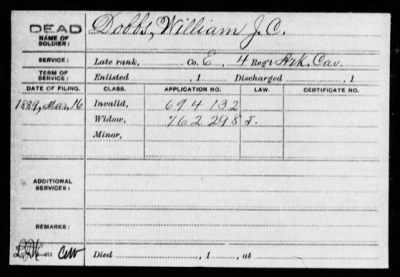 DEAD
NAME OF SOLDIER: Dobbs, William J. C.
SERVICE: Late rank, Co. E, 4 Reg't Ark. Cav.
TERM OF SERVICE: Enlisted , 1 Discharged , 1
DATE OF FILING. CLASS. APPLICATION NO. LAW. CERTIFICATE NO.
1889, Mar. 16 Invalid, 694132
Widow, 762298
Minor,
ADDITIONAL SERVICES:
REMARKS:
Died , 1 , at